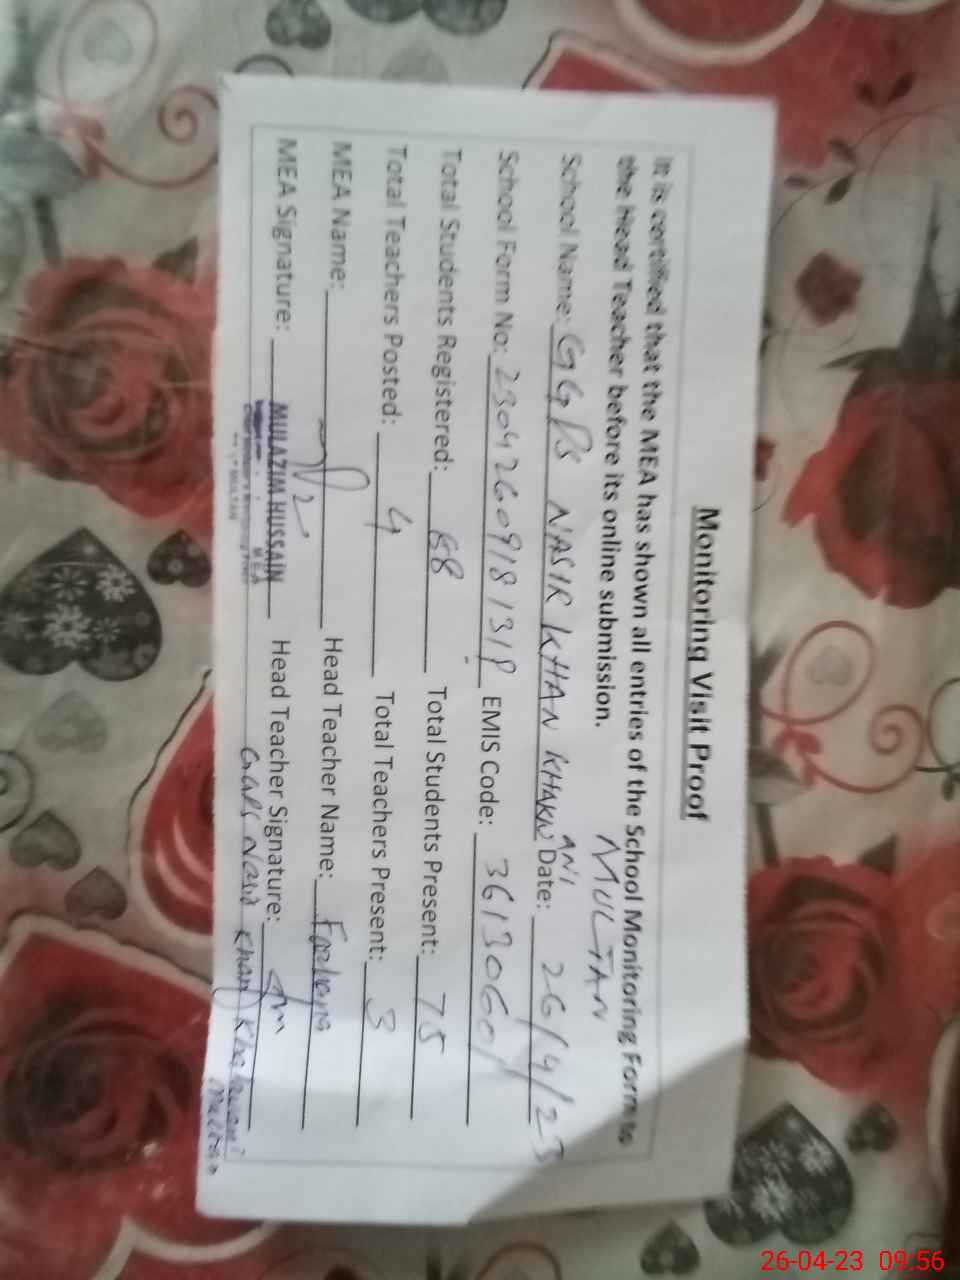 Monitoring Visit Proof
It is certified that the MEA has shown all entries of the School Monitoring Form to
the Head Teacher before its online submission. MULTAN
School Name: GGPS NASIR KHAN KHAKW ANI Date: 26/4/23
School Form No: EMIS Code: 36130601
Total Students Registered: 88 Total Students Present: 75
Total Teachers Posted: 4 Total Teachers Present: 3
MEA Name: Head Teacher Name: Farhana
MEA Signature: MULAZIM HUSSAIN Head Teacher Signature:
MEA
GGPS Nasir Khan Khakwani
Multan
26-04-23 09:56